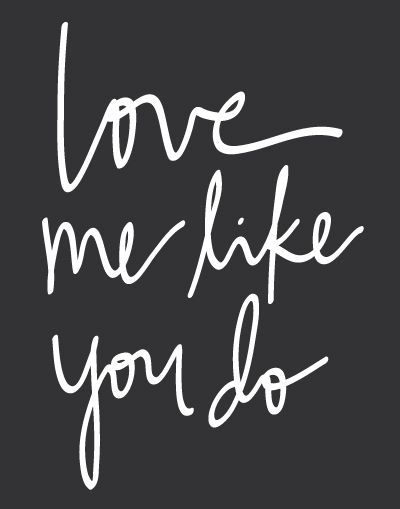 love
me like
you do